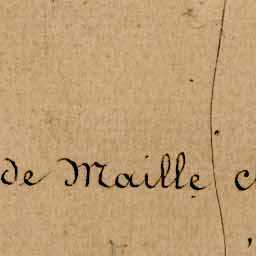 de Maille c